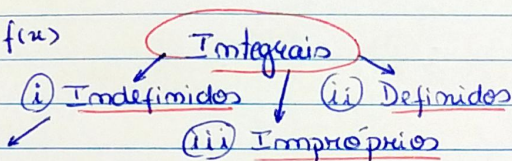 f(x)
Integrais
(i) Indefinidos
(ii) Definidos
(iii) Impróprios